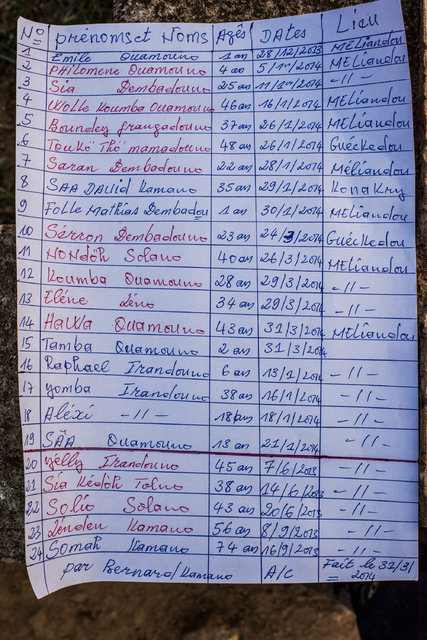 N° prénoms et Noms Agés DATES Lieu
1 Emile Ouamouno 1 an 28/12/2013 MELiandou
2 Philomene Ouamouno 4 an 5/1er/2014 MELiandou
3 Sia Dembadouno 25 an 11/1er/2014 -//-
4 Wolle Koumba Ouamouno 46 an 16/1/2014 MELiandou
5 37 an 26/1/2014 MELiandou
6 mamadouno 48 an 26/1/2014 Guéckedou
7 Saran Dembadouno 22 an 28/1/2014 Méliandou
8 SAA DAViD Kamano 35 an 29/1/2014 KonaKry
9 Folle Mathias Dembadou 1 an 30/1/2014 MELiandou
10 Sérron Dembadouno 23 an 24/3/2014 Guéckedou
11 NoNdöh Solano 40 an 26/3/2014 MELiandou
12 Koumba Ouamouno 28 an 29/3/2014 -//-
13 Eléne Léno 34 an 29/3/2014 -//-
14 HaWa Ouamouno 43 an 31/3/2014 MELiandou
15 Tamba Ouamouno 2 an 31/3/2014
16 Raphael Irandouno 6 an 13/1/2014 -//-
17 yomba Irandouno 38 an 16/1/2014 -//-
18 Aléxi -//- 18 an 18/1/2014 -//-
19 SÃA Ouamouno 13 an 21/1/2014 -//-
20 yélly Irandouno 45 an 7/6/2013 -//-
21 Sia Kédöh Tolno 38 an 14/6/2013 -//-
22 Solio Solano 43 an 20/6/2013 -//-
23 Kamano 56 an 8/9/2013 -//-
24 Somah Kamano 74 an 16/9/2013 -//-
par Bernard Kamano A/C Fait le 32/3/
= 2014